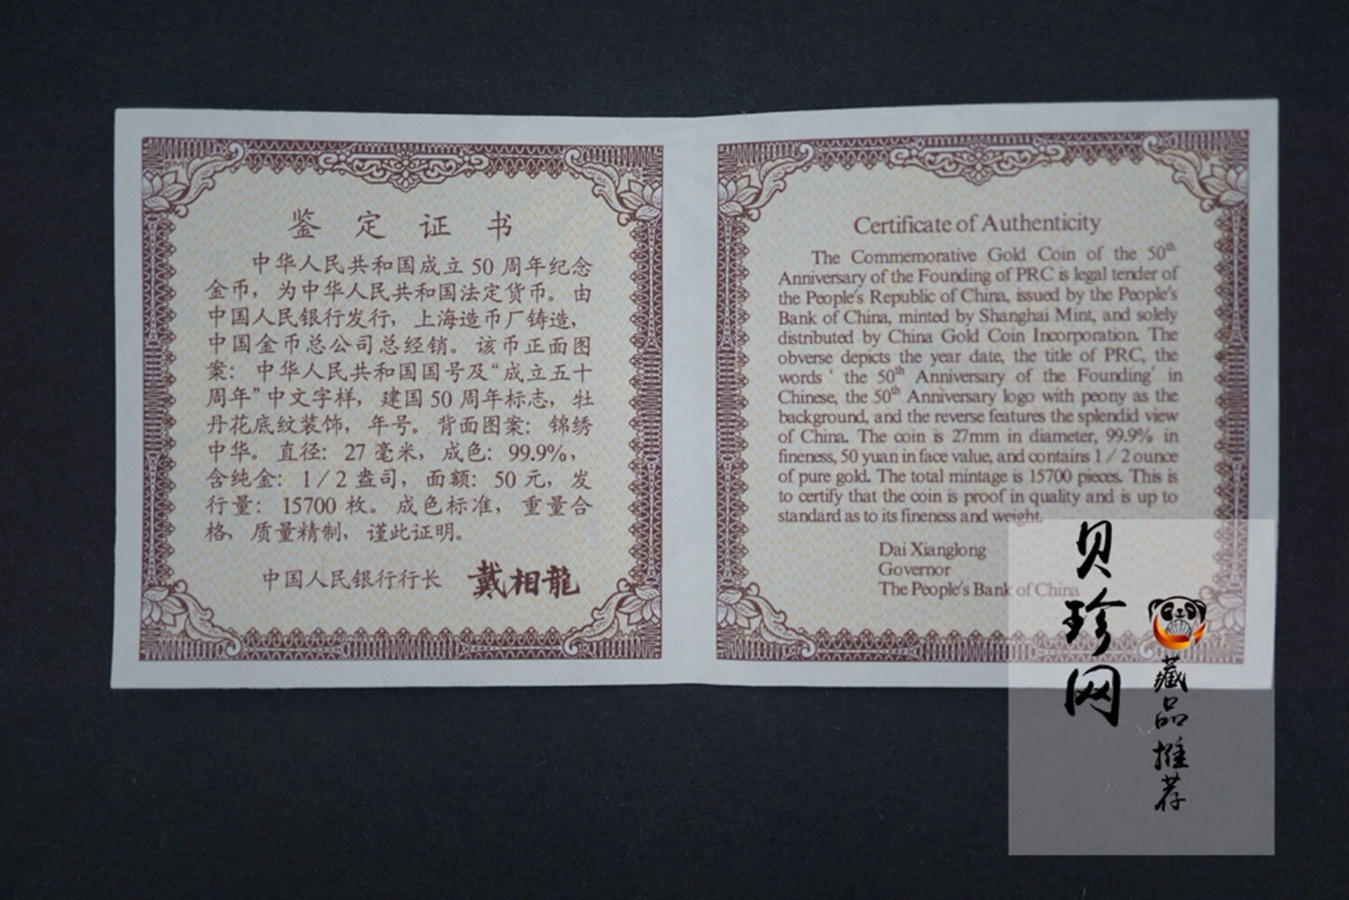 鉴定证书
中华人民共和国成立50周年纪念
金币，为中华人民共和国法定货币。由
中国人民银行发行，上海造币厂铸造，
中国金币总公司总经销。该币正面图
案：中华人民共和国国号及“成立五十
周年”中文字样，建国50周年标志，牡
丹花底纹装饰，年号。背面图案：锦绣
中华。直径：27毫米，成色：99.9%，
含纯金：1/2盎司，面额：50元，发
行量：15700枚。成色标准，重量合
格，质量精制，谨此证明。
中国人民银行行长 戴相龍
Certificate of Authenticity
The Commemorative Gold Coin of the 50th
Anniversary of the Founding of PRC is legal tender of
the People's Republic of China, issued by the People's
Bank of China, minted by Shanghai Mint, and solely
distributed by China Gold Coin Incorporation. The
obverse depicts the year date, the title of PRC, the
words ' the 50th Anniversary of the Founding' in
Chinese, the 50th Anniversary logo with peony as the
background, and the reverse features the splendid view
of China. The coin is 27mm in diameter, 99.9% in
fineness, 50 yuan in face value, and contains 1/2 ounce
of pure gold. The total mintage is 15700 pieces. This is
to certify that the coin is proof in quality and is up to
standard as to its fineness and weight.
Dai Xianglong
Governor
The People's Bank of China
贝珍网
藏品推荐